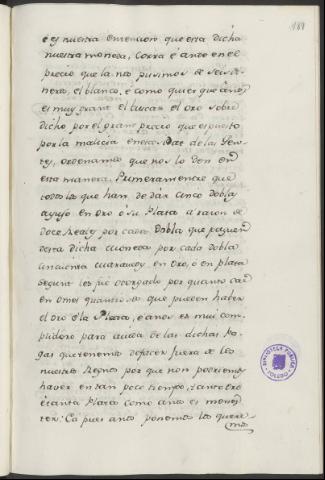 181
é es nuestra entencion que esta dicha
nuestra moneda, corra é ande en el
precio que la nos pusimos de seis di-
neros, el blanco, é como quier que á nos
es muy grave el buscar el oro sobre
dicho por el gran precio que es puesto
por la malicia de las Gen-
tes, ordenamos que nos lo den en
esta manera. Primeramente que
todos los que han de dár cinco doblas
ayuso en oro ó su Plata á razon de
doce Reales por cada dobla que paguen
desta dicha moneda por cada dobla
cincuenta maravedis en oro, ó en plata
segun les fué otorgado por quanto car
en omes quantiosos que pueden haber
el oro ó la Plata, é á nos es mui com-
plidero para aiuda de las dichas Pa-
gas que tenemos de facer fuera de los
nuestros Regnos por que non podriemos
haver en tan poco tiempo, tanto Oro
é tanta Plata como á nos es menes-
ter: Ca pues á nos ponemos los quere-
mos
BIBLIOTECA PUBLICA
TOLEDO